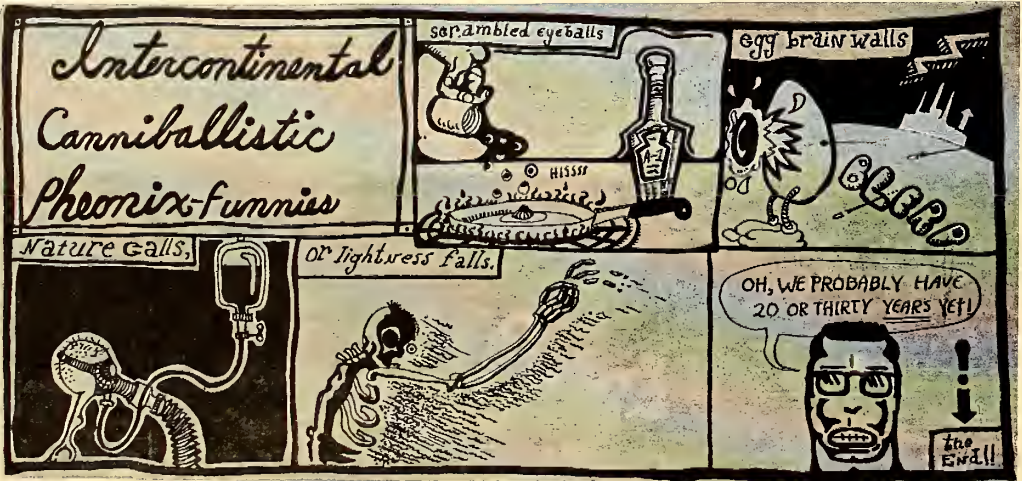 Intercontinental
Canniballistic
Pheonix-funnies
scrambled eyeballs
A-1
HISSSS
egg brain walls
BLERP
Nature Calls,
or lightness falls.
OH, WE PROBABLY HAVE
20 OR THIRTY YEARS YET!
the
END!!